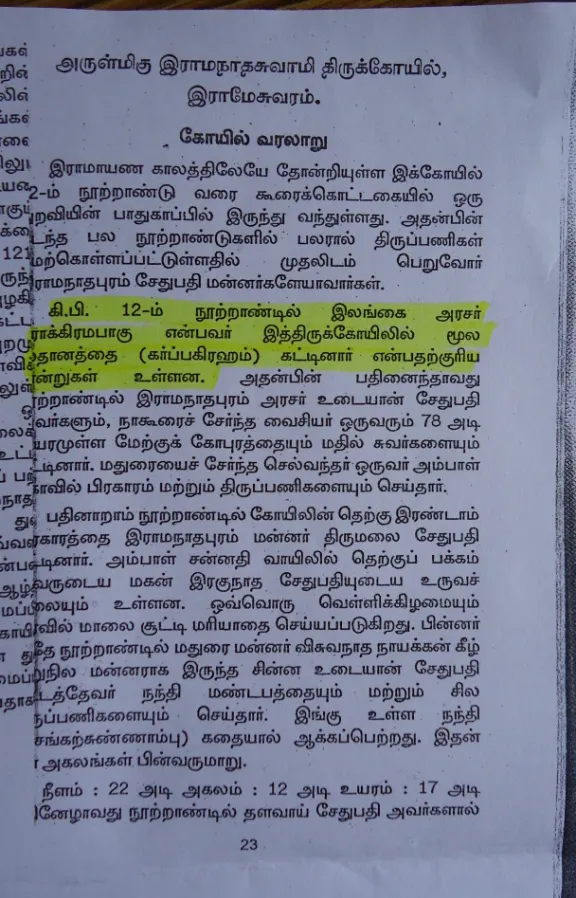 அருள்மிகு இராமநாதசுவாமி திருக்கோயில்,
இராமேசுவரம்.
கோயில் வரலாறு
இராமாயண காலத்திலேயே தோன்றியுள்ள இக்கோயில்
2-ம் நூற்றாண்டு வரை கூரைக்கொட்டகையில் ஒரு
றவியின் பாதுகாப்பில் இருந்து வந்துள்ளது. அதன்பின்
டந்த பல நூற்றாண்டுகளில் பலரால் திருப்பணிகள்
மற்கொள்ளப்பட்டுள்ளதில் முதலிடம் பெறுவோர்
ராமநாதபுரம் சேதுபதி மன்னர்களேயாவார்கள்.
கி.பி. 12-ம் நூற்றாண்டில் இலங்கை அரசர்
ராக்கிரமபாகு என்பவர் இத்திருக்கோயிலில் மூல
தானத்தை (கர்ப்பகிரஹம்) கட்டினார் என்பதற்குரிய
ன்றுகள் உள்ளன. அதன்பின் பதினைந்தாவது
ற்றாண்டில் இராமநாதபுரம் அரசர் உடையான் சேதுபதி
வர்களும், நாகூரைச் சேர்ந்த வைசியர் ஒருவரும் 78 அடி
யரமுள்ள மேற்குக் கோபுரத்தையும் மதில் சுவர்களையும்
ட்டினார். மதுரையைச் சேர்ந்த செல்வந்தர் ஒருவர் அம்பாள்
காவில் பிரகாரம் மற்றும் திருப்பணிகளையும் செய்தார்.
பதினாறாம் நூற்றாண்டில் கோயிலின் தெற்கு இரண்டாம்
ரகாரத்தை இராமநாதபுரம் மன்னர் திருமலை சேதுபதி
ட்டினார். அம்பாள் சன்னதி வாயிலில் தெற்குப் பக்கம்
வருடைய மகன் இரகுநாத சேதுபதியுடைய உருவச்
லையும் உள்ளன. ஒவ்வொரு வெள்ளிக்கிழமையும்
ரவில் மாலை சூட்டி மரியாதை செய்யப்படுகிறது. பின்னர்
தே நூற்றாண்டில் மதுரை மன்னர் விசுவநாத நாயக்கன் கீழ்
றுநில மன்னராக இருந்த சின்ன உடையான் சேதுபதி
டத்தேவர் நந்தி மண்டபத்தையும் மற்றும் சில
நப்பணிகளையும் செய்தார். இங்கு உள்ள நந்தி
சங்கற்சுண்ணாம்பு) கதையால் ஆக்கப்பெற்றது. இதன்
அகலங்கள் பின்வருமாறு.
நீளம் : 22 அடி அகலம் : 12 அடி உயரம் : 17 அடி
னேழாவது நூற்றாண்டில் தளவாய் சேதுபதி அவர்களால்
23